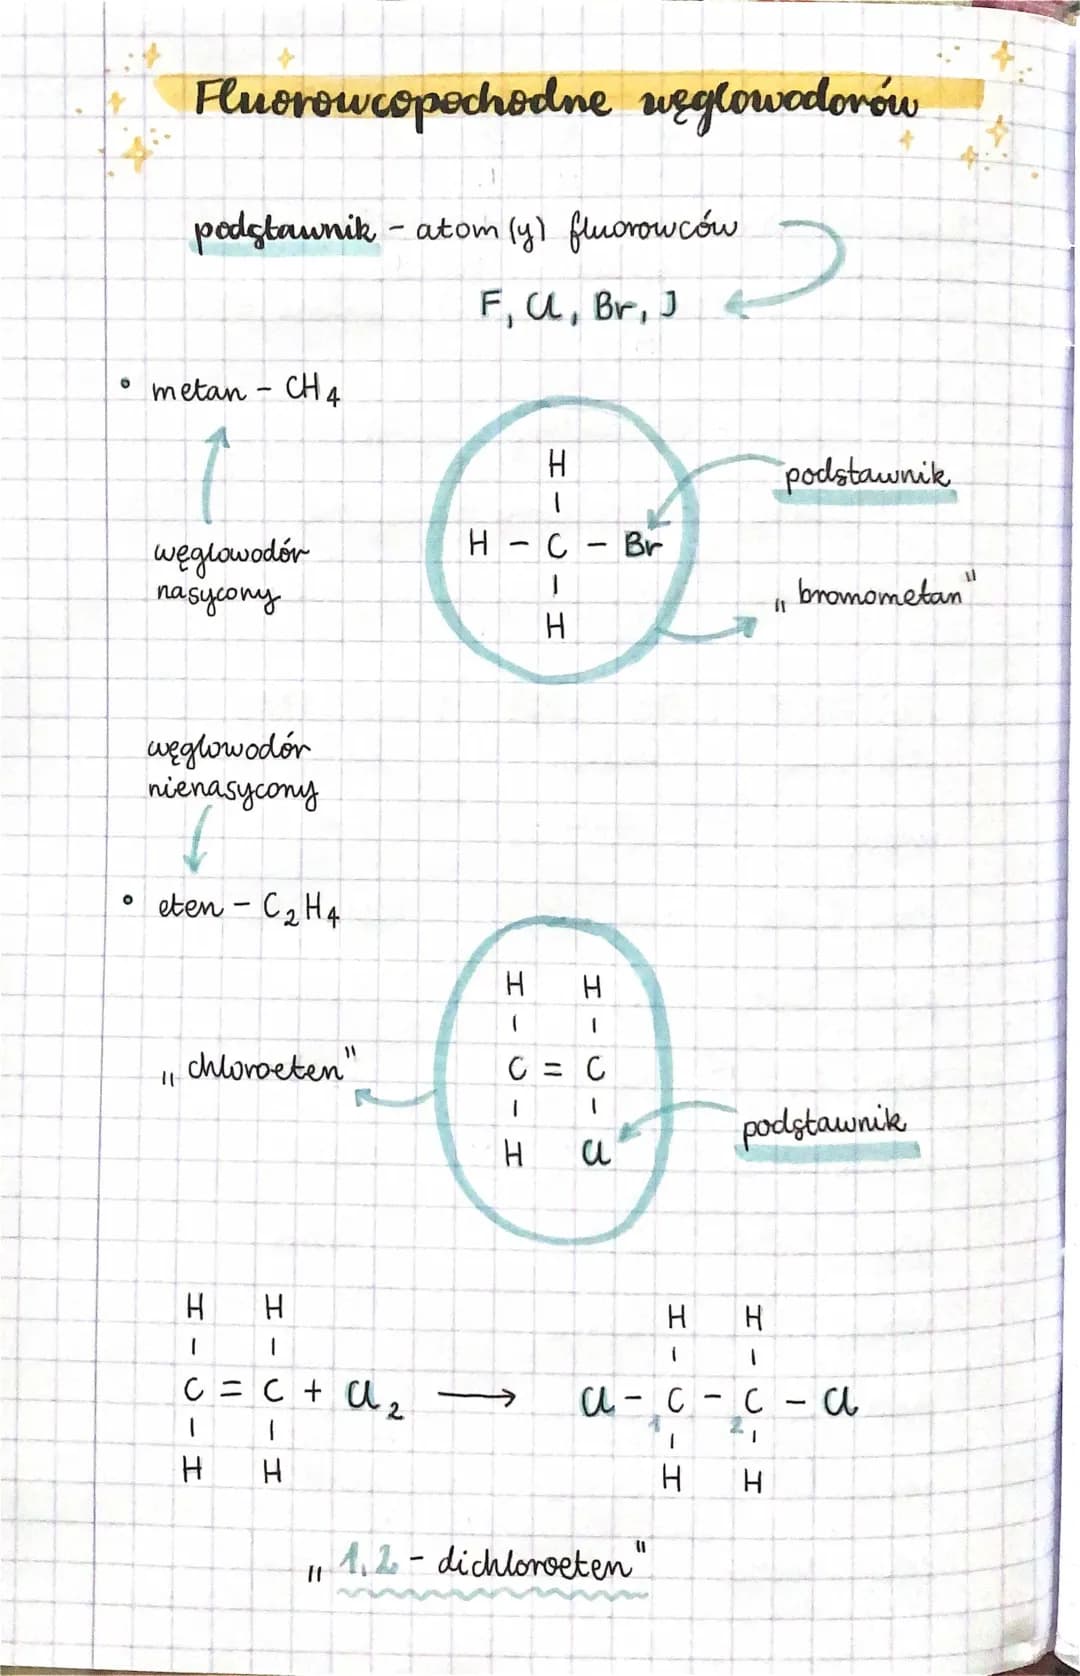 Fluorowcopochodne węglowodorów
podstawnik - atom(y) fluorowców
F, Cl, Br, J
• metan - CH4
węglowodór
nasycony
H
|
H - C - Br
|
H
podstawnik
„bromometan"
węglowodór
nienasycony
• eten - C2H4
„chloroeten"
H H
| |
C = C
| |
H Cl
podstawnik
H H H H
| | | |
C = C + Cl2 → Cl - C - C - Cl
1 2
| | | |
H H H H
„1,2 - dichloroeten"